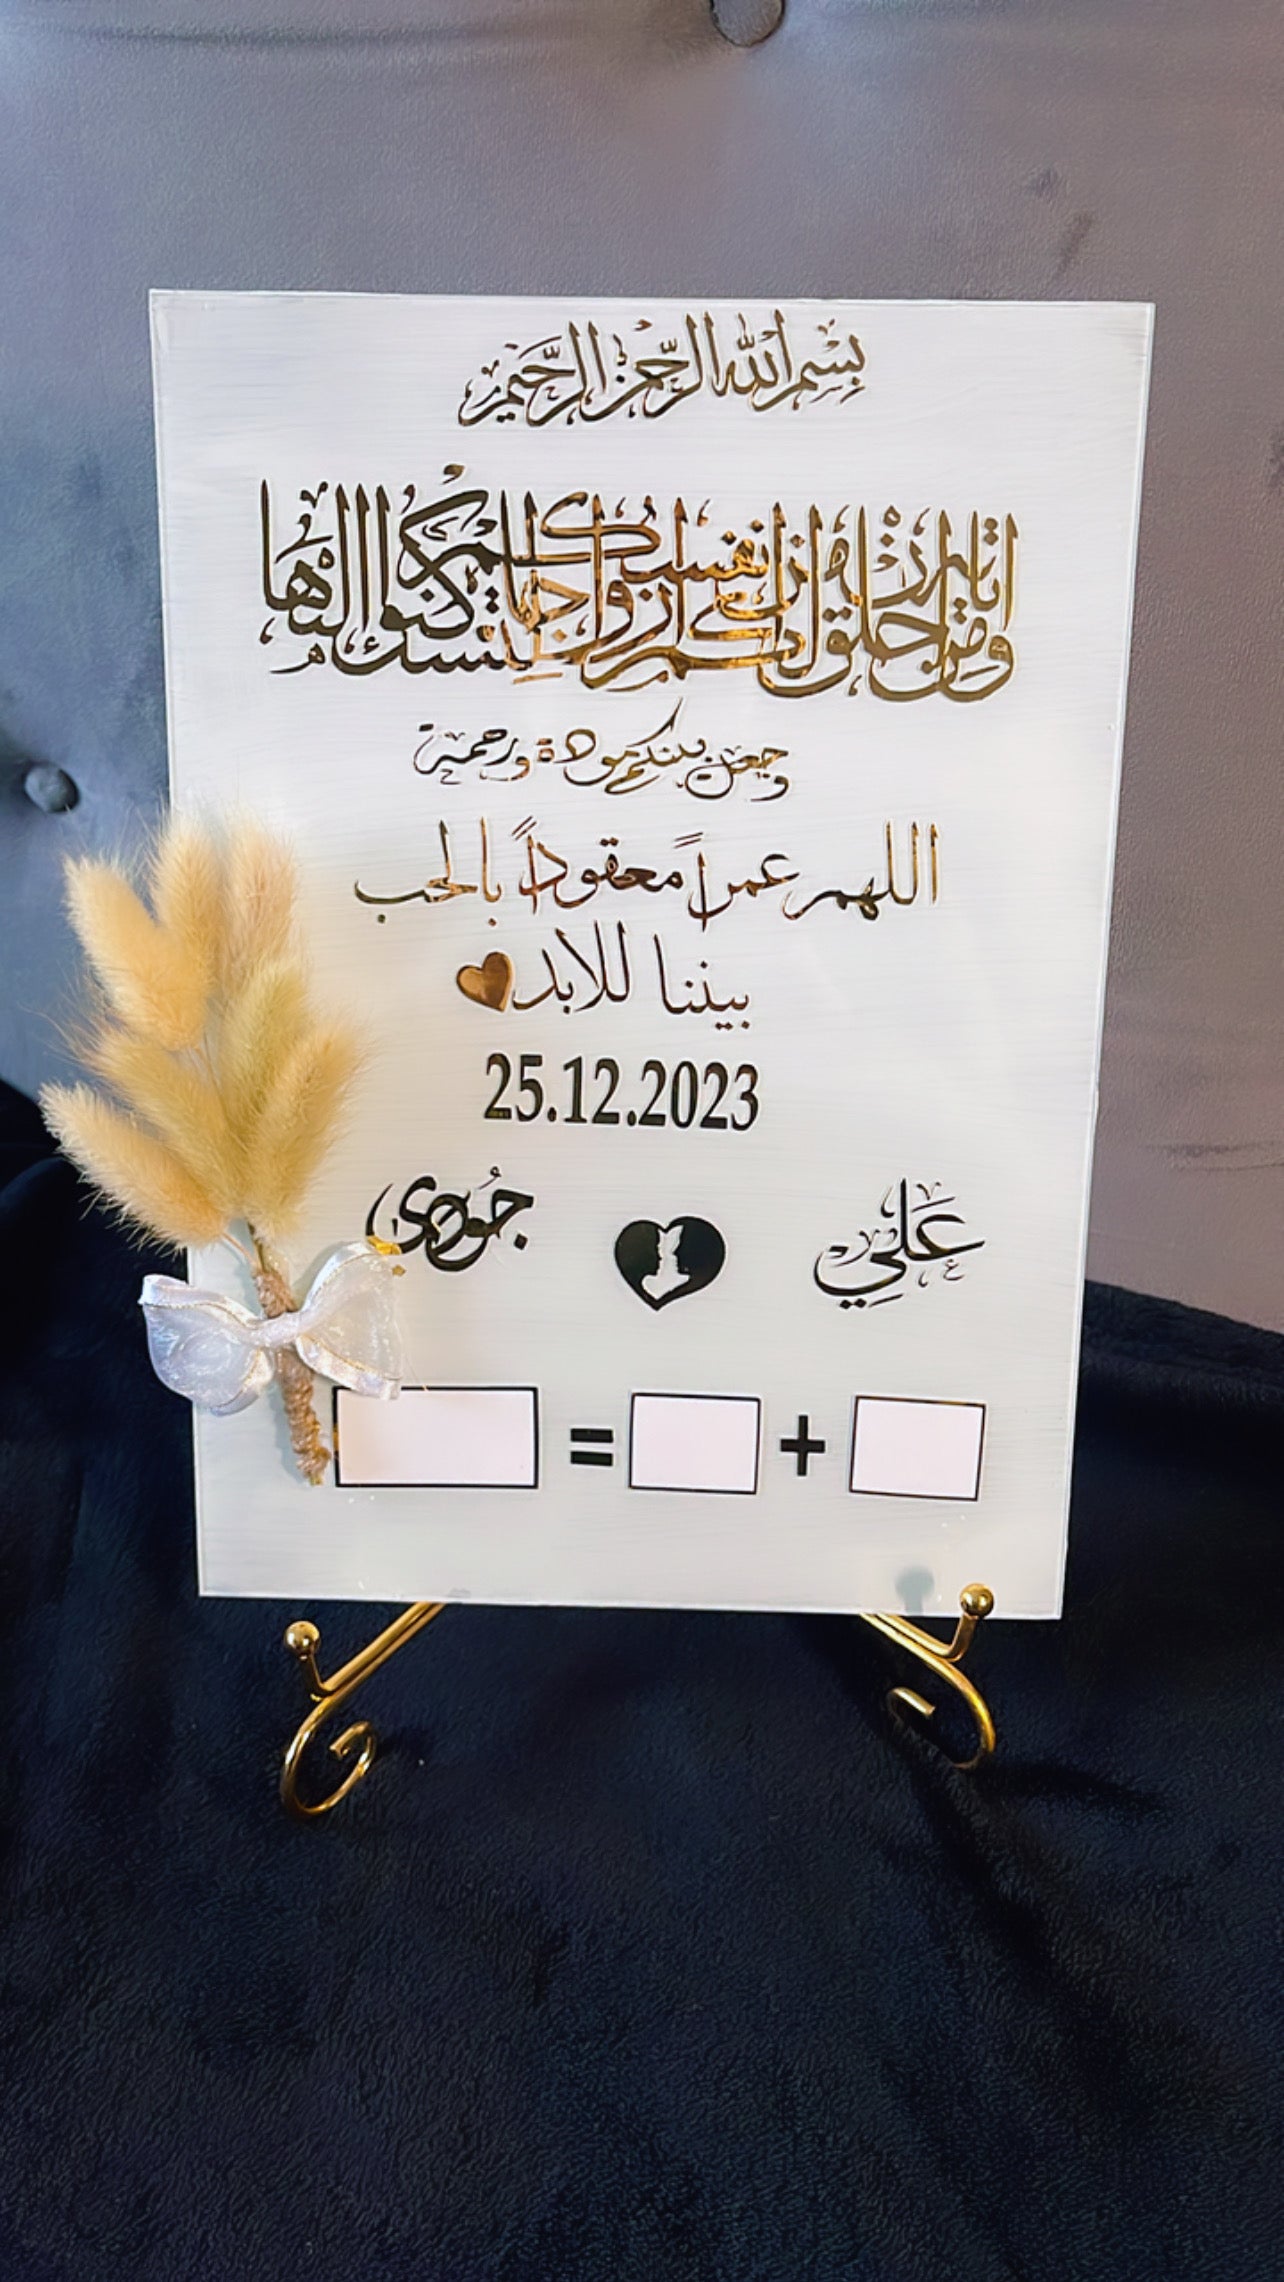 بِسْمِ اللهِ الرَّحْمَنِ الرَّحِيمِ
ومن آياته أن خلق لكم من أنفسكم أزواجا لتسكنوا إليها
وجعل بينكم مودة ورحمة
اللهم عمراً معقوداً بالحب
بيننا للابد
25.12.2023
عَلِي جُودي
+ =